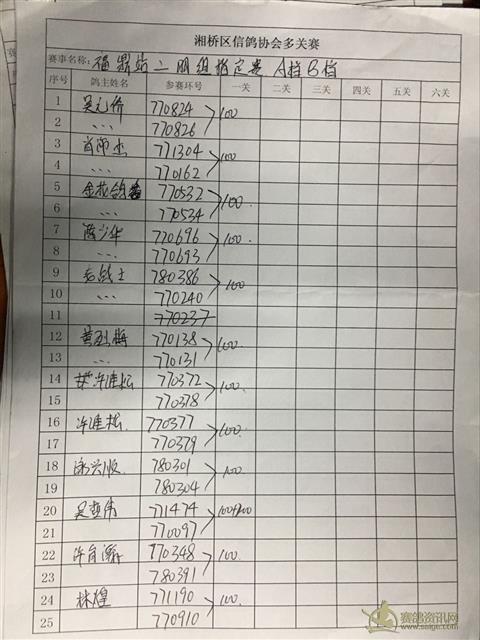 湘桥区信鸽协会多关赛
赛事名称: 福鼎站二羽组指定赛 A档B档
序号 鸽主姓名 参赛环号 一关 二关 三关 四关 五关 六关
1 770824 100
2 、、、 770826
3 771304 100
4 、、、 770162
5 770532 100
6 、、、 770534
7 陈少华 770696 100
8 、、、 770693
9 老战士 780386 100
10 、、、 770240
11 770237
12 770138 100
13 、、、 770131
14 许准松 770372 100
15 770378
16 许准松 770377 100
17 770379
18 780301 100
19 780304
20 771474 100+100
21 770097
22 770348 100
23 780391
24 林煌 771190 100
25 770910
赛鸽资讯网
www.saige.com